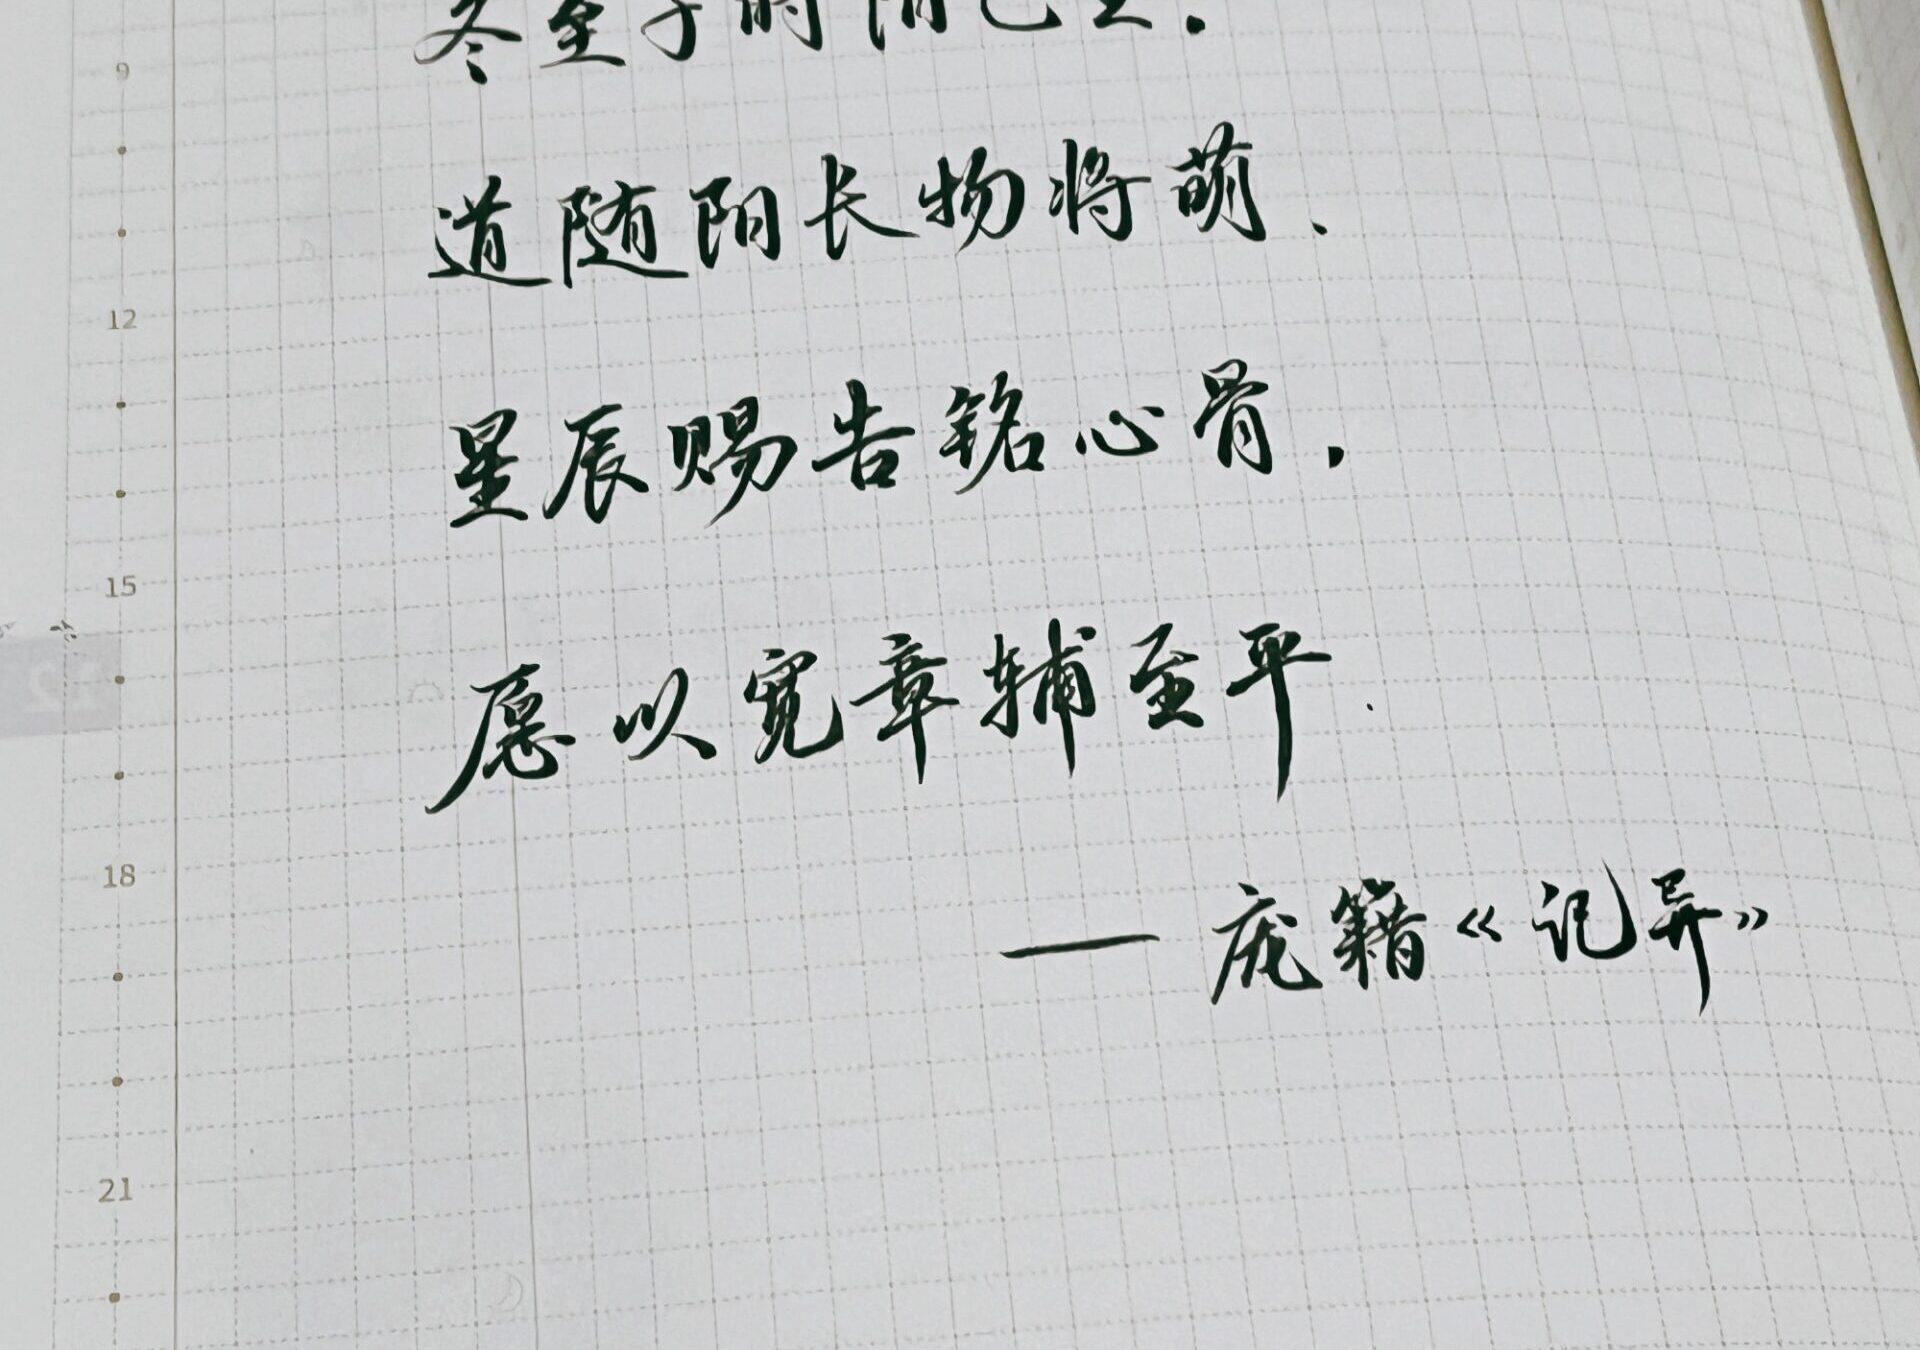 冬至子时阳已生.
9
道随阳长物将萌.
12
星辰赐告铭心骨.
15
愿以宽章辅至平.
18
——庞籍《记异》
21